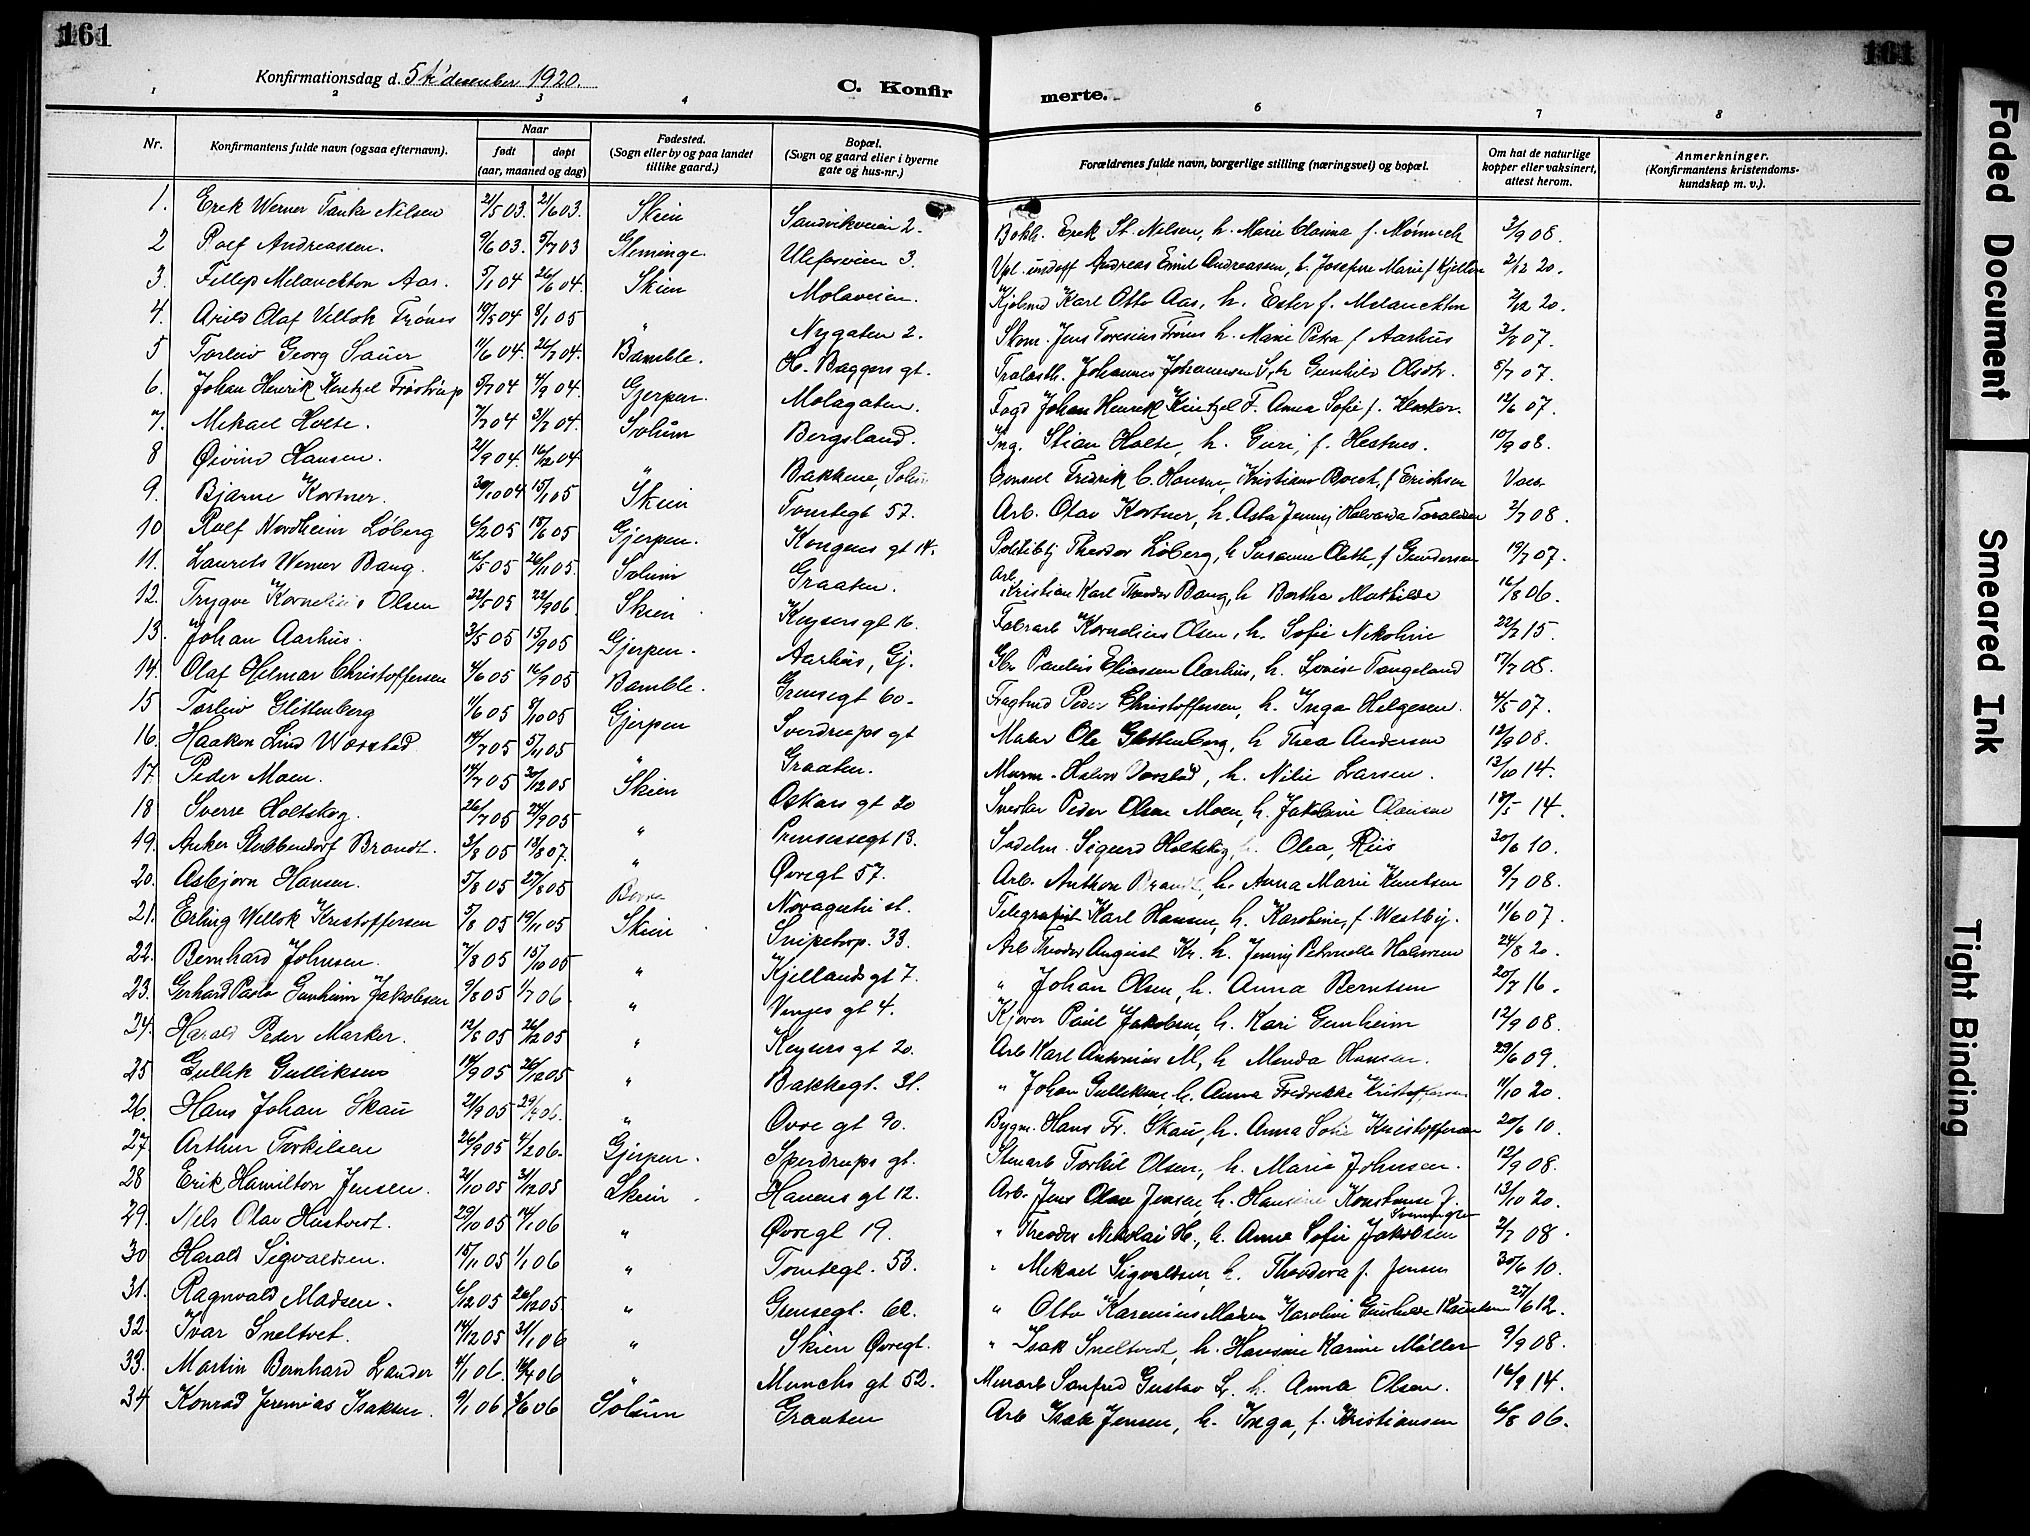 161
161
Konfirmationsdag d. 5te desember 1920.
C. Konfir
merte.
1 2 3 4 6 7 8
Nr. Konfirmantens fulde navn (ogsaa efternavn). Naar født døpt (aar, maaned og dag) Fødested. (Sogn eller by og paa landet tillike gaard.) Bopæl. (Sogn og gaard eller i byerne gate og hus-nr.) Forældrenes fulde navn, borgerlige stilling (næringsvei) og bopæl. Om hat de naturlige kopper eller vaksinert, attest herom. Anmerkninger. (Konfirmantens kristendoms-kundskap m. v.).
1. Erik Werner Tanke Nilsen 2/5 03. 21/6 03. Skien Sandvikveien 2. Bokh. Erik St. Nilsen, h. Marie Clarina f. Mønnich 2/9 08.
2 Rolf Andreassen. 9/6 03. 5/7 03 Glemminge Ulefosveien 3. Andreas Emil Andreassen, h. Josefine Marie f Kjellin 2/12 20.
3. Fillep Melanckton Aas. 5/1 04 26/6 04. Skien Molaveien. Karl Otto Aas, h. Ester f. Melanckton 2/12 20.
4. Arild Olaf Vellok Frónes 19/5 04 8/1 05 " Nygaten 2. Skom. Jens h. Marie Petra f Aarhus 3/7 07.
5 Torleiv Georg Sauer 11/6 04. 26/7 04. Bamble. H. Baggers gt. Johannes Johannesen S, h Gunhild Olsdtr. 5/7 07.
6. Johan Henrik Kintzel Frøstrup 5/7 04 4/9 04. Gjerpen. Molagaten. Fogd Johan Henrik Kintzel F. Anna Sofie f. Klocker. 12/6 07.
7. Mikael Holte. 7/7 04 31/7 04. Solum Bergsland. Ing. Stian Holte, h. Guri, f. Hestnes. 10/9 08.
8 Øivind Hansen. 21/9 04. 16/12 04 " Bakkene, Solum Fredrik C. Hansen, Kristiane Boret, f Erichsen Vacc
9. Bjarne Kortner. 30/10 04 15/1 05 Skien Tomtegt 57. Arb. Olav Kortner, h. Asta Jenny Halvarda Toraldsen 2/7 08.
10 Rolf Nordheim Løberg 6/2 05 18/6 05 Gjerpen. Kongens gt 14. Politibtj Theodor Løberg, h Susanne Olette, f Gundersen 19/7 07.
11. Laurits Werner Bang. 16/5 05 26/11 05. Solum Graaten. Arb. Kristian Karl Theodor Bang, h Bertha Mathilde 16/8 06.
12. Trygve Kornelius Olsen 22/5 05 22/9 06. Skien Keysers gt 16. Fabrarb Kornelius Olsen, h. Sofie Nikoline 22/7 15.
13. Johan Aarhus. 3/5 05 15/9 05 Gjerpen. Aarhus, Gj. Gbr Paulus Eliassen Aarhus, h. Lovise Tangeland 17/7 08.
14. Olaf Hilmar Christoffersen 4/6 05 16/9 05 Bamble. Grensegt 60. Peder Christoffersen, h. Inga Helgesen. 4/5 07.
15 Torleiv Glittenberg 11/6 05 8/10 05 Gjerpen Sverdrups gt Maler Ole Glittenberg, h Thea Andersen 12/9 08.
16. Haakon Lind Wærstad 14/7 05 5/11 05 " Graaten. Murm. Halvor Værstad, h. Nilie Larsen. 13/10 14.
17 Peder Moen. 14/7 05 20/12 05 Skien Oskars gt 20 Snedker Peder Olsen Moen, h. Jakobine Olausen 18/5 14.
18 Sverre Holtskog. 26/7 05 24/9 05 " Prinsessegt 13. Sadelm. Sigurd Holtskog, h. Olea, Riis 30/6 10.
19. Anker Stubbendorf Brandt. 3/8 05 18/8 07. " Øvregt 57. Arb. Anthon Brandt, h. Anna Marie Knutsen 9/7 08.
20. Asbjørn Hansen. 5/8 05 27/8 05 Borre Telegrafist Karl Hansen, h. Karoline, f. Westby. 11/6 07.
21. Erling Wellok Kristoffersen 5/8 05 19/11 05 Skien Snipetorp. 33. Arb. Theodor August Kr. h. Jenny Petronella Halvorsen 24/8 20.
22. Bernhard Johnsen. 7/8 05 15/10 05 " Kjellands gt 7. " Johan Olsen, h. Anna Berntsen 20/7 16.
23. Gerhard Paulo Gunheim Jakobsen 9/8 05 1/7 06 " Venjes gt 4. Kjører Paul Jakobsen, h. Kari Gunheim 12/9 08.
24. Harald Peder Marker. 12/8 05 26/12 05 " Keysers gt 20. Arb Karl Antonius M, h Minda Hansen. 29/6 09.
25 Gullik Gulliksen 14/9 05 26/12 05 " Bakkegt. 31. " Johan Gulliksen, h. Anna Fredrikke Kristoffersen 11/10 20.
26. Hans Johan Skau 21/9 05 29/4 06. " Øvre gt 90. Bygm. Hans Fr. Skau, h. Anna Sofie Kristoffersen 20/6 10.
27. Arthur Torkilsen 26/9 05 4/2 06. Gjerpen. Sverdrups gt. Stenarb Torkil Olsen, h. Maria Johnsen. 12/9 08.
28 Erik Hamilton Jensen. 2/10 05 31/12 05 Skien Havens gt 12. Arb. Jens Olav Jensen, h. Hansine Konstanse J. 13/10 20.
29. Nils Olav Hustvedt. 29/10 05 14/1 06 " Øvregt 19. " Theodor Nikolai H., h. Anna Sofie Jakobsen 2/7 08.
30 Harald Sigvaldsen. 15/11 05 1/1 06 " Tomtegt. 53. " Mikael Sigvaldsen, h. Theodora f. Jensen 30/6 10.
31. Ragnvald Madsen. 6/12 05 26/12 05 " Grensegt. 62. " Otto Karenius Madsen Karoline Gunhilde Knutsen 27/6 12.
32. Ivar Sneltvet. 14/12 05 31/1 06 " Skien Øvregt. " Isak Sneltvedt, h. Hansine Karine Møller 9/9 08.
33. Martin Bernhard Lander 4/1 06. 16/4 06 " Munchs gt 52. Murarb Sanfred Gustav L. h. Anna Olsen. 16/9 14.
34 Konrad Jeremias Isaksen. 9/1 06 3/6 06 Solum Graaten Arb Isak Jensen, h. Inga, f. Kristiansen 6/8 06.
Faded Document
Smeared Ink
Tight Binding